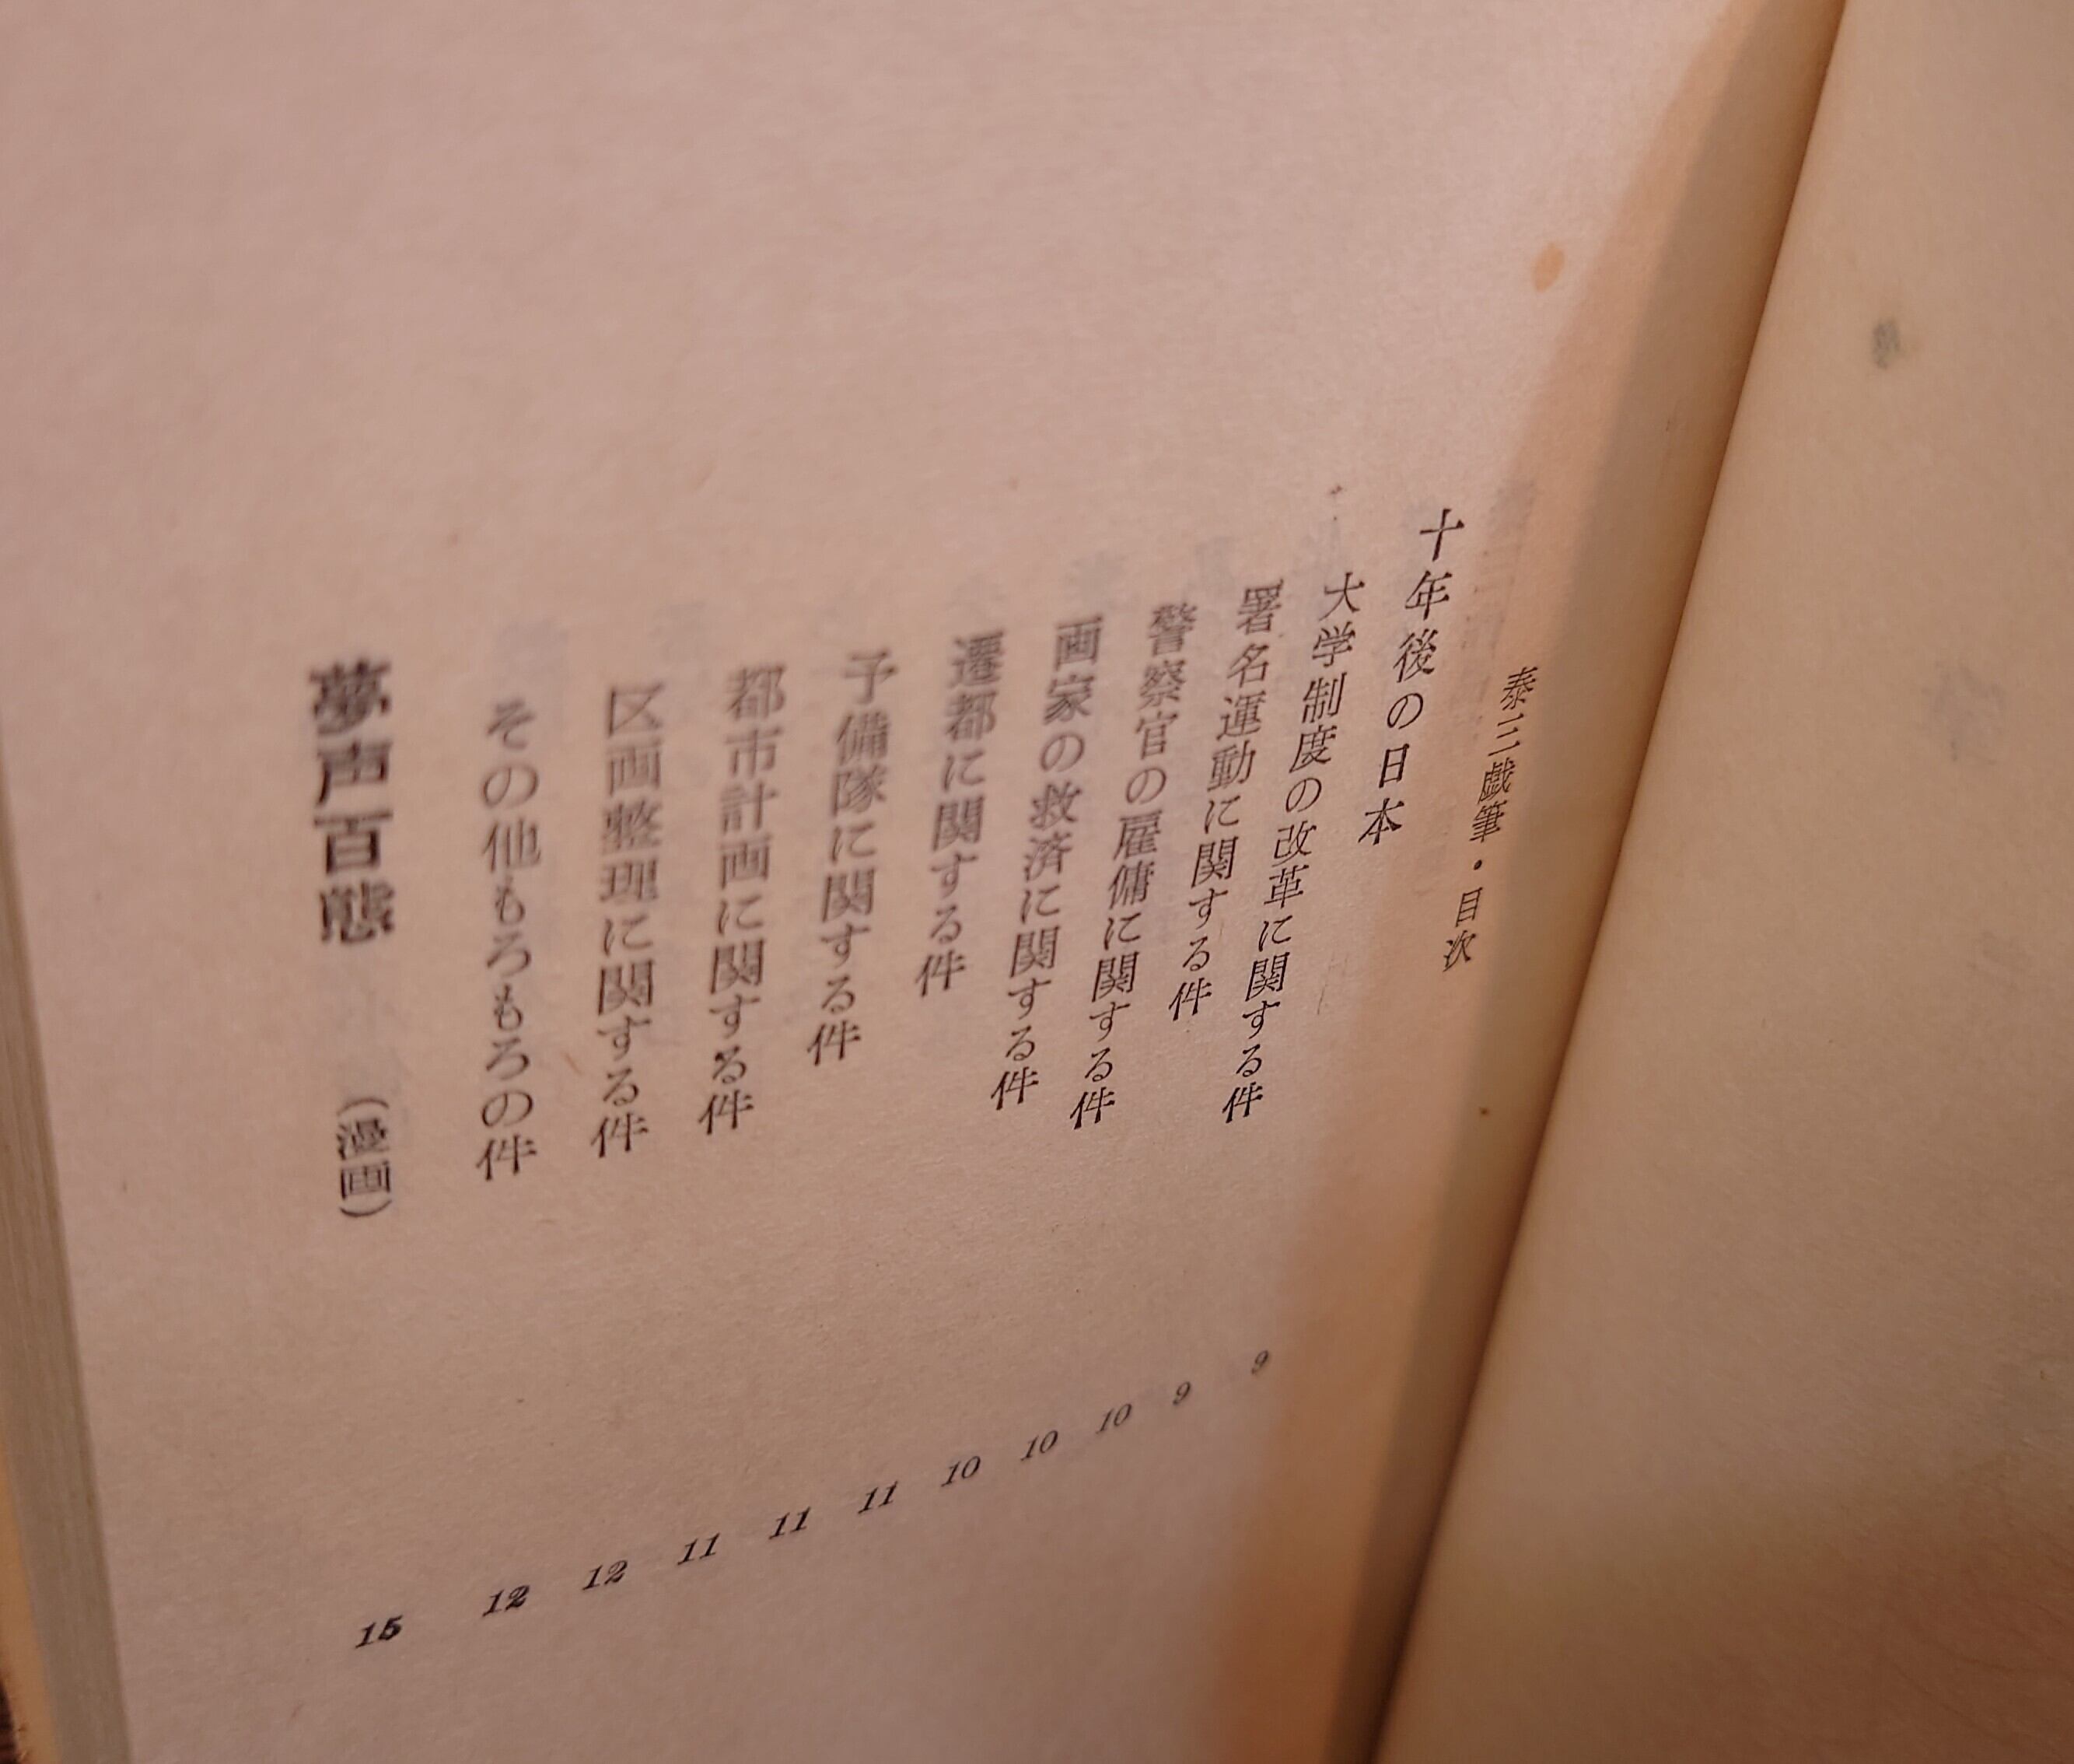 泰三戯筆・目次
十年後の日本
大学制度の改革に関する件 9
署名運動に関する件 9
警察官の雇傭に関する件 10
画家の救済に関する件 10
遷都に関する件 10
予備隊に関する件 11
都市計画に関する件 11
区画整理に関する件 11
その他もろもろの件 12
12
夢声百態 (漫画) 15